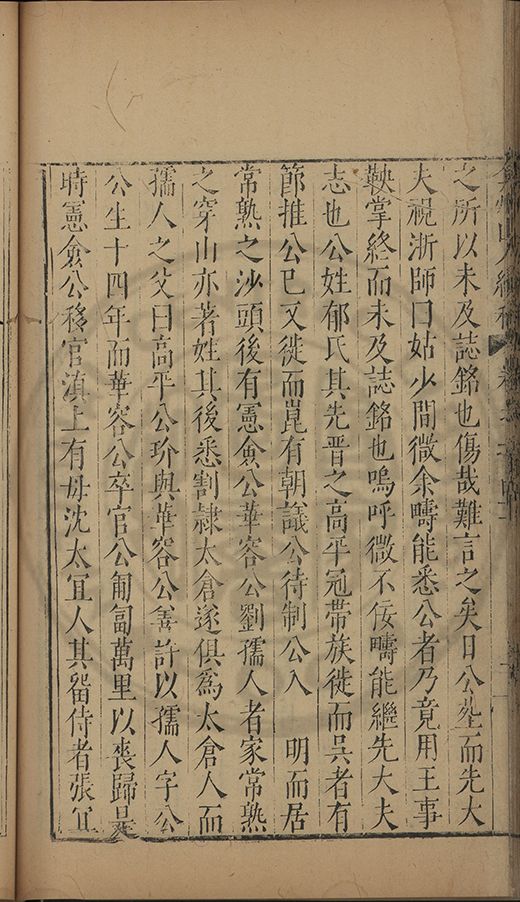 之所以未及誌銘也傷哉難言之矣日公塟而先大
夫視浙師曰姑少間微余疇能悉公者乃竟用王事
鞅掌終而未及誌銘也嗚呼微不佞疇能繼先大夫
志也公姓郁氏其先晋之高平冠帶族徙而吳者有
節推公已又徙而崑有朝議公待制公入　明而居
常熟之沙頭後有憲僉公華容公劉孺人者家常熟
之穿山亦著姓其後悉割隷太倉遂俱爲太倉人而
孺人之父曰高平公玠與華容公善許以孺人字公
公生十四年而華容公卒官公匍匐萬里以喪歸是
時憲僉公移官滇上有母沈太宜人其留侍者張宜